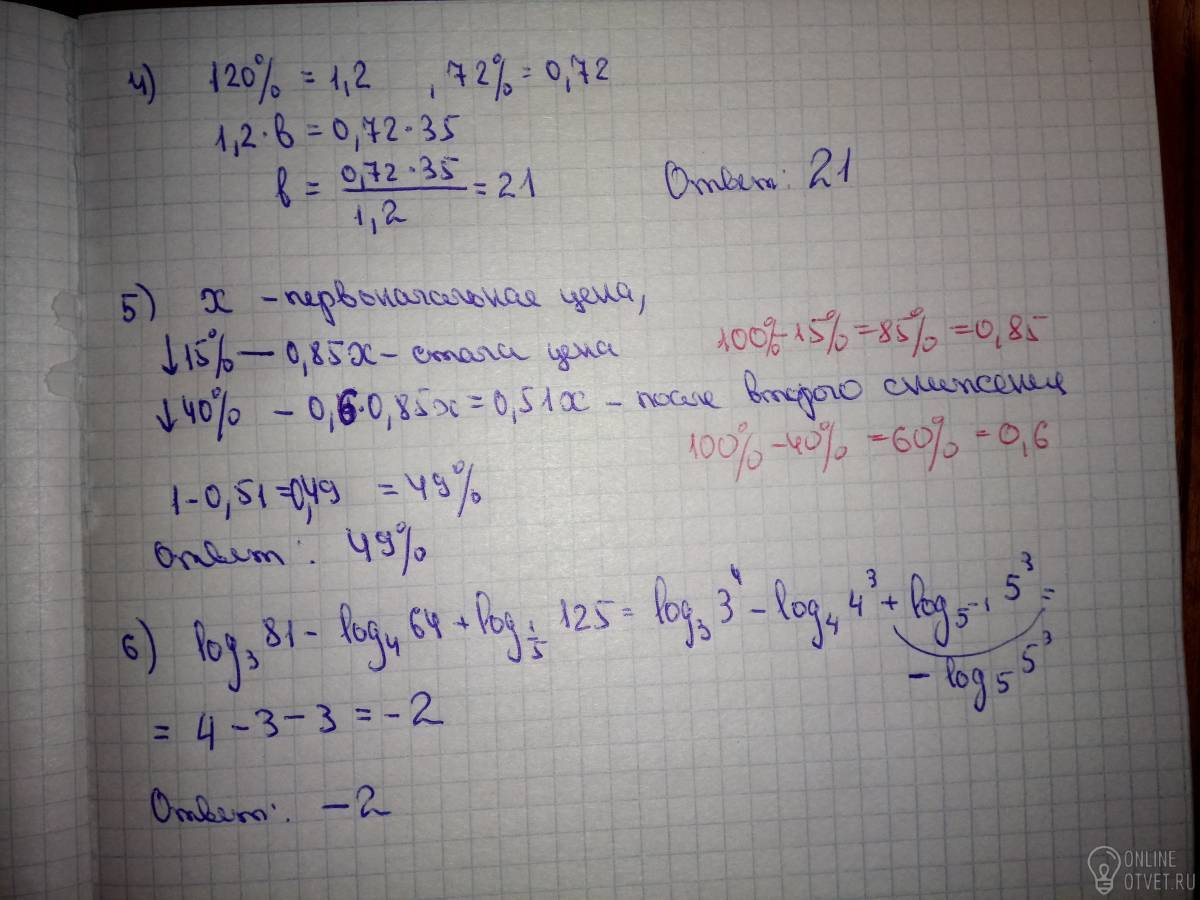 4) 120% = 1,2 , 72% = 0,72
1,2·в = 0,72·35
в = \frac{0,72·35}{1,2} = 21 Ответ: 21
5) x – первоначальная цена,
↓15% — 0,85x – стала цена 100%-15% = 85% = 0,85
↓40% – 0,6·0,85x = 0,51x – после второго снижения
100% - 40% = 60% = 0,6
1 - 0,51 = 0,49 = 49%
Ответ: 49%
6) log₃ 81 - log₄ 64 + log_{\frac{1}{5}} 125 = log₃ 3⁴ - log₄ 4³ + log_{5⁻¹} 5³ =
- log₅ 5³
= 4 - 3 - 3 = -2
Ответ: -2
ONLINE
OTVET.RU